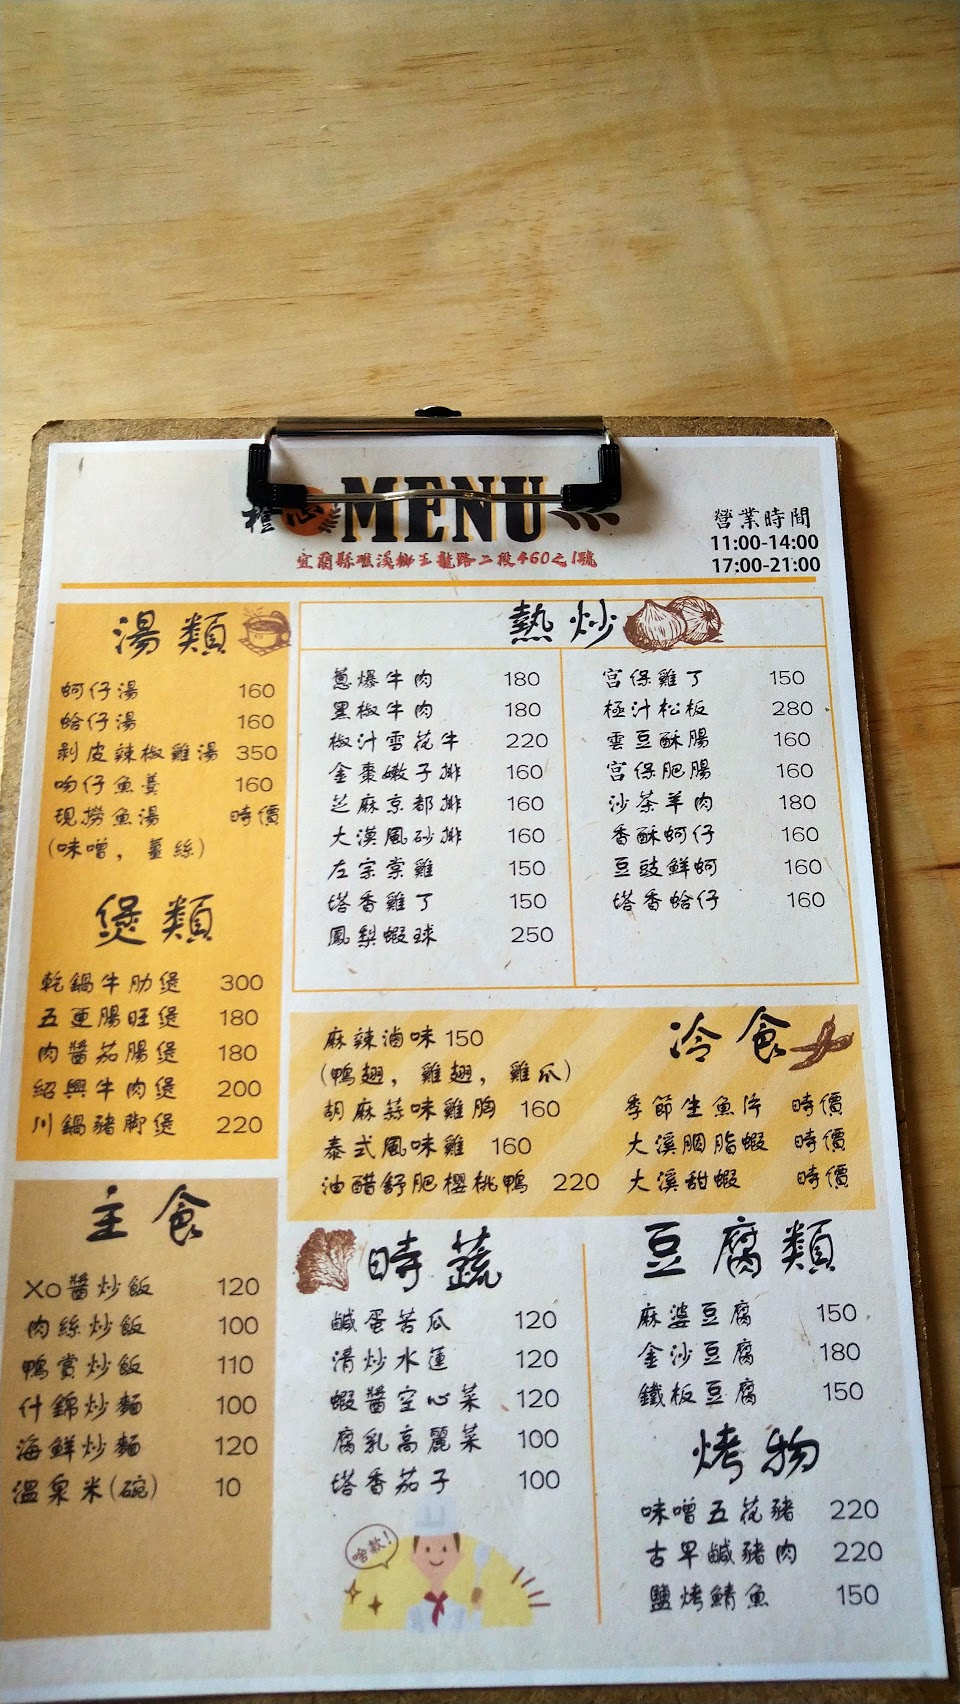 MENU
宜蘭縣礁溪鄉玉龍路二段460之1號
營業時間
11:00-14:00
17:00-21:00
湯類
蚵仔湯 160
蛤仔湯 160
剝皮辣椒雞湯 350
吻仔魚羹 160
現撈魚湯 時價
(味噌, 薑絲)
煲類
乾鍋牛肋煲 300
五更腸旺煲 180
肉醬茄腸煲 180
紹興牛肉煲 200
川鍋豬腳煲 220
主食
XO醬炒飯 120
肉絲炒飯 100
鴨賞炒飯 110
什錦炒麵 100
海鮮炒麵 120
溫泉米(碗) 10
熱炒
蔥爆牛肉 180
黑椒牛肉 180
椒汁雪花牛 220
金棗嫩子排 160
芝麻京都排 160
大漠風砂排 160
左宗棠雞 150
塔香雞丁 150
鳳梨蝦球 250
宮保雞丁 150
極汁松板 280
雲豆酥腸 160
宮保肥腸 160
沙茶羊肉 180
香酥蚵仔 160
豆豉鮮蚵 160
塔香蛤仔 160
冷食
麻辣滷味 150
(鴨翅, 雞翅, 雞爪)
胡麻蒜味雞胸 160
泰式風味雞 160
油醋舒肥櫻桃鴨 220
季節生魚片 時價
大溪胭脂蝦 時價
大溪甜蝦 時價
時蔬
鹹蛋苦瓜 120
清炒水蓮 120
蝦醬空心菜 120
腐乳高麗菜 100
塔香茄子 100
啥款!
豆腐類
麻婆豆腐 150
金沙豆腐 180
鐵板豆腐 150
烤物
味噌五花豬 220
古早鹹豬肉 220
鹽烤鯖魚 150